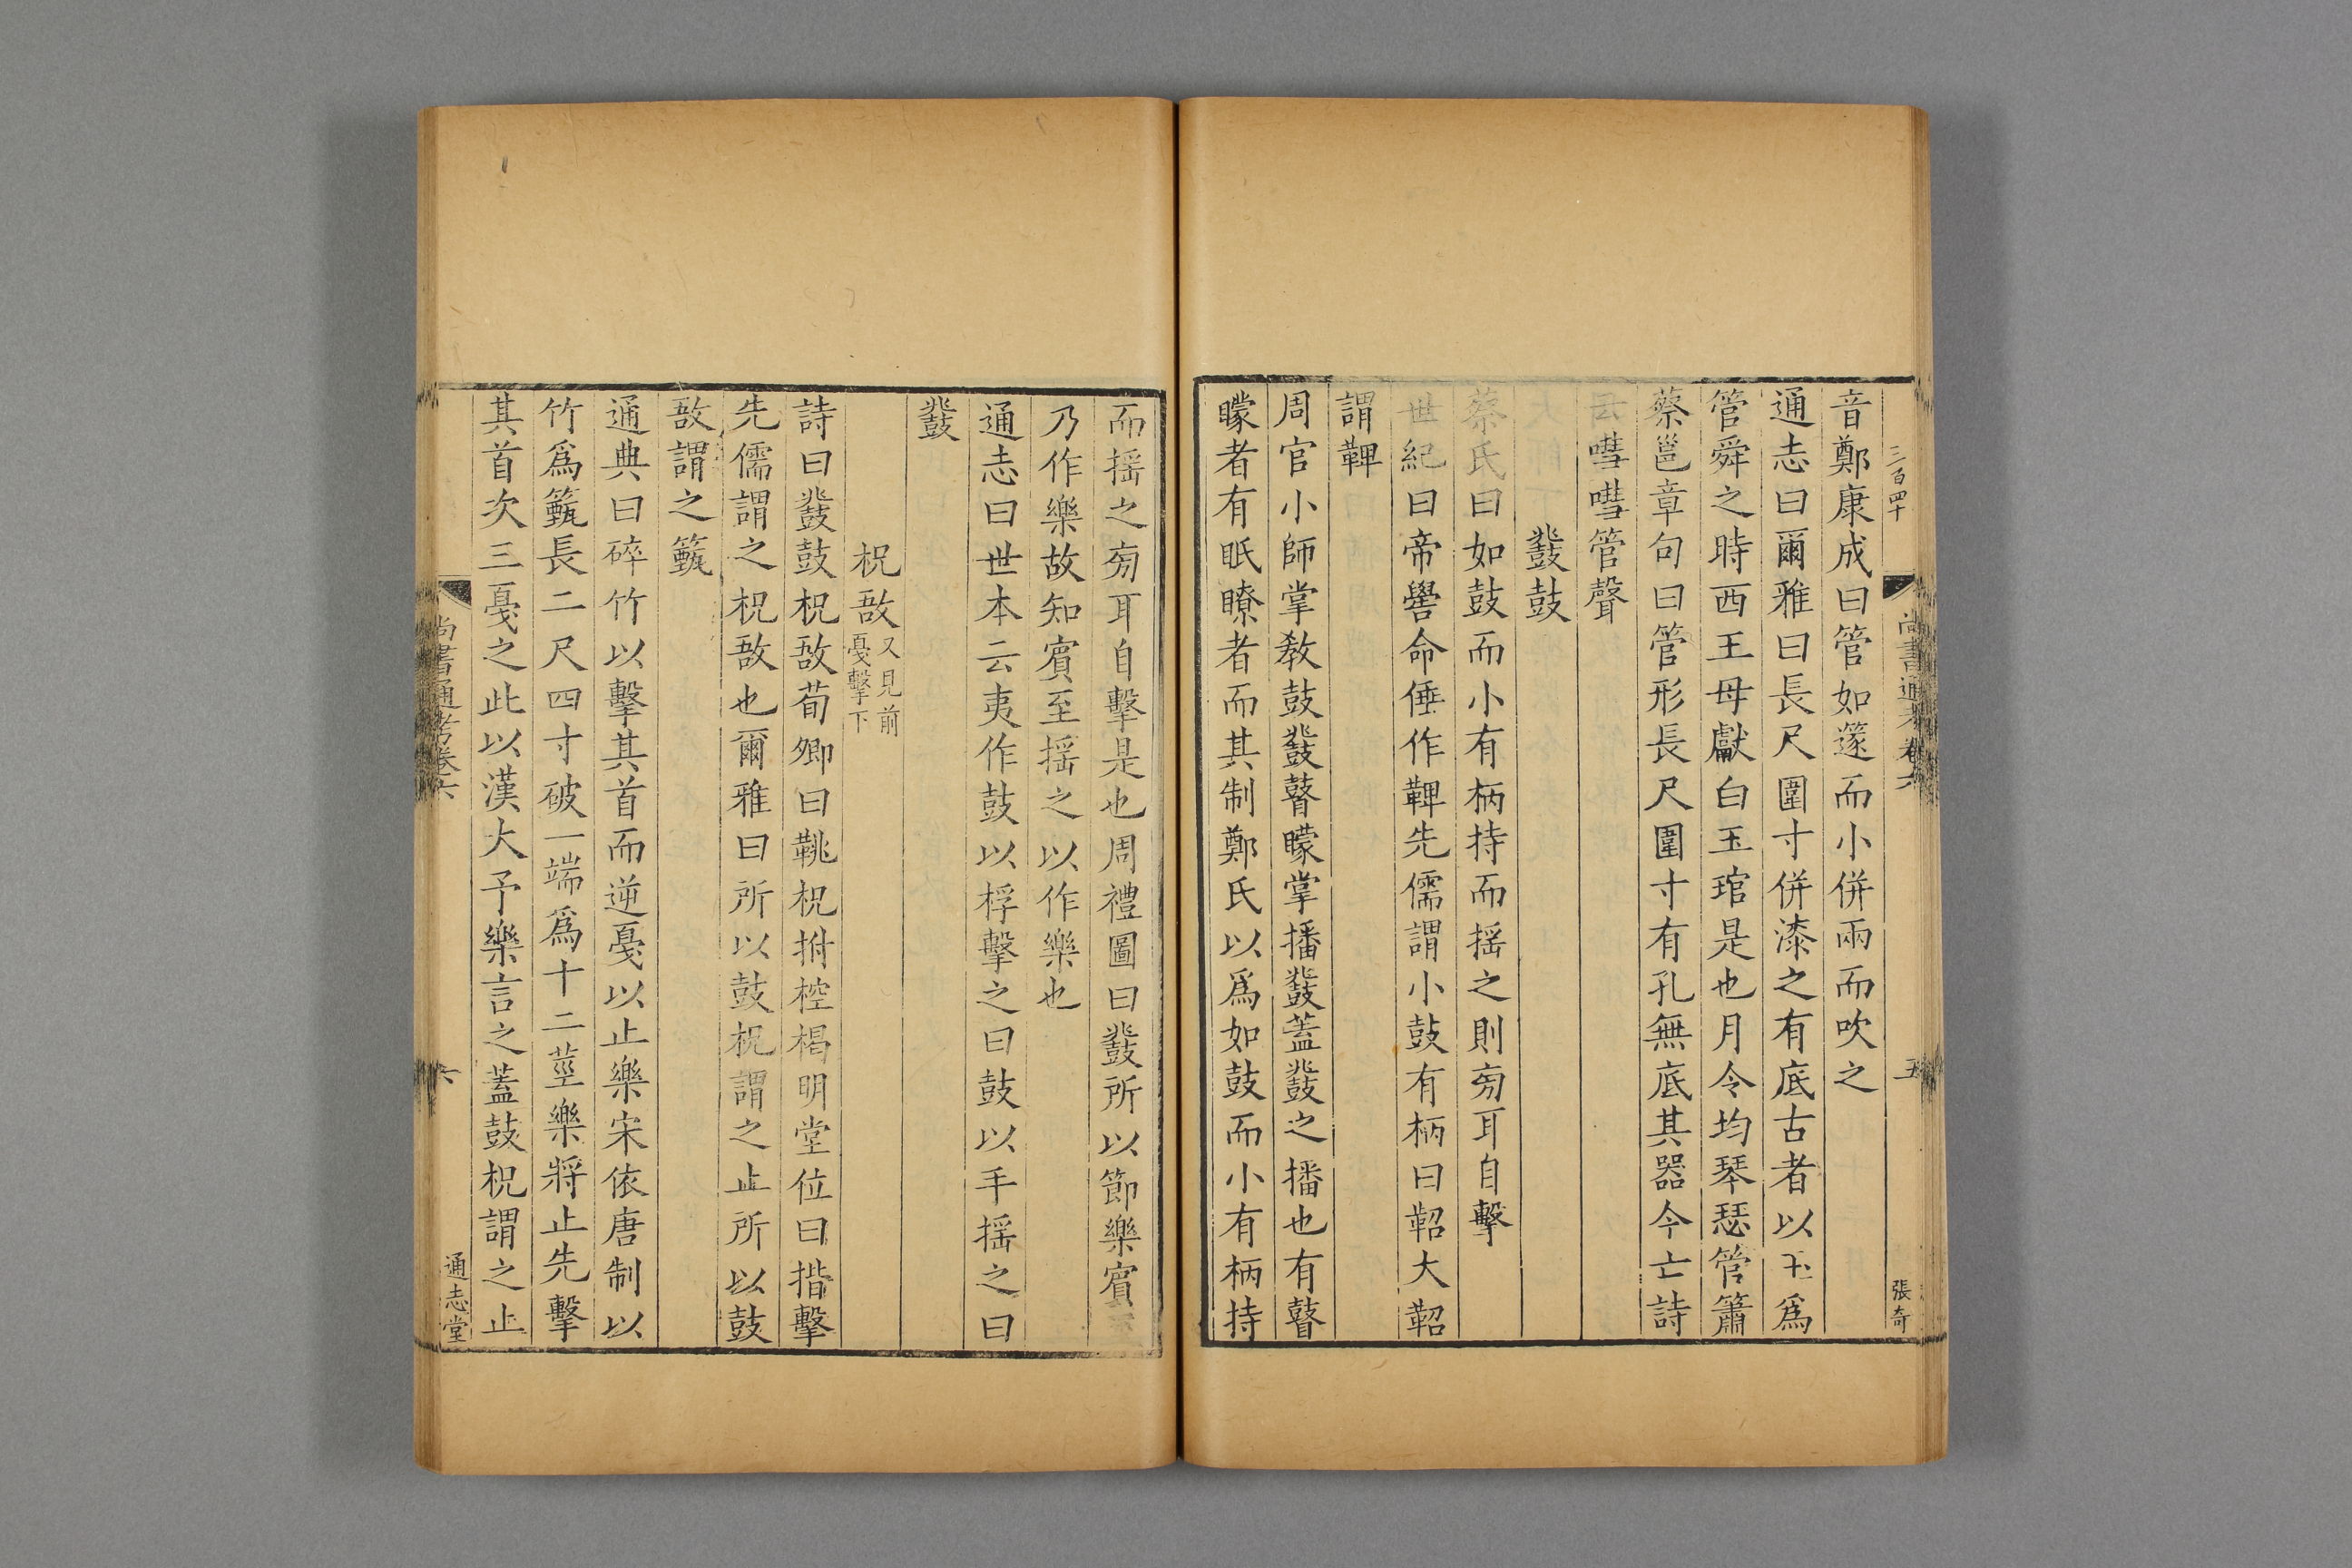 三百四十
尚書通考卷六
五
張奇
音鄭康成曰管如篴而小併兩而吹之
通志曰爾雅曰長尺圍寸併漆之有底古者以玉爲
管舜之時西王母獻白玉琯是也月令均琴瑟管簫
蔡邕章句曰管形長尺圍寸有孔無底其器今亡詩
云嘒嘒管聲
鼗鼓
蔡氏曰如鼓而小有柄持而揺之則旁耳自擊
世紀曰帝嚳命倕作鞞先儒謂小鼓有柄曰鞀大鞀
謂鞞
周官小師掌敎鼓鼗瞽矇掌播鼗蓋鼗之播也有瞽
矇者有眂瞭者而其制鄭氏以爲如鼓而小有柄持
而揺之旁耳自擊是也周禮圖曰鼗所以節樂賔至
乃作樂故知賔至揺之以作樂也
通志曰世本云夷作鼓以桴擊之曰鼓以手揺之曰
鼗
柷敔又見前戞擊下
詩曰鼗鼓柷敔荀卿曰鞉柷拊椌楬明堂位曰揩擊
先儒謂之柷敔也爾雅曰所以鼓柷謂之止所以鼓
敔謂之籈
通典曰碎竹以擊其首而逆戞以止樂宋依唐制以
竹爲籈長二尺四寸破一端爲十二莖樂將止先擊
其首次三戞之此以漢大予樂言之蓋鼓柷謂之止
尚書通考卷六
六
通志堂